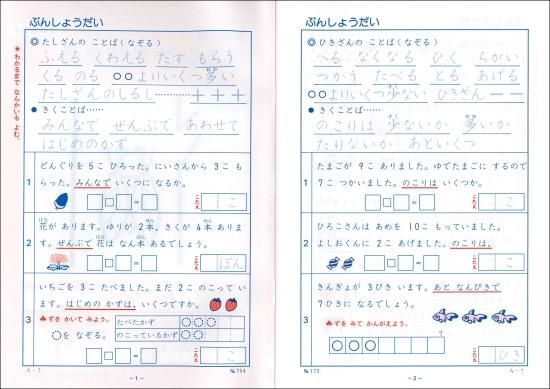 ぶんしょうだい
★わかるまで なんかいも よむ。
◎たしざんの ことば(なぞる)
ふえる くわえる たす もらう
くる のる ○○よりいくつ多い
たしざんのしるし……＋＋＋
●きくことば……
みんなで ぜんぶで あわせて
はじめのかず
1
どんぐりを 5こ ひろった。にいさんから 3こ も
らった。みんなで いくつに なるか。
□□□=□
こたえ こ
2
花が あります。ゆりが 2本、きくが 4本 ありま
す。ぜんぶで 花は なん本 あるでしょう。
□□□=□
こたえ ぽん
3
いちごを 3こ たべました。まだ 2こ のこって い
ます。はじめの かずは、いくつですか。
♣ずを かいて みよう。
○を なぞる。
たべたかず
のこっているかず
□□□=□
こたえ こ
A-7
-1-
ぶんしょうだい
◎ひきざんの ことば(なぞる)
へる なくなる ひく ちがい
つかう たべる とる あげる
○○よりいくつ少ない ひきざん ーー
●きくことば……
のこりは 少ないか 多いか
たりないか あといくつ
1
たまごが 9こ ありました。ゆでたまごに するので
7こ つかいました。のこりは いくつか。
□□□=□
こたえ こ
2
ひろこさんは あめを 10こ もっていました。
よしおくんに 2こ あげました。のこりは、
□□□=□
こたえ
3
きんぎょが 3びき います。あと なんびきで
7ひきに なるでしょう。
♣ずを みて かんがえよう。
7
□□□=□
こたえ ひき
No.173
-2-
A-7